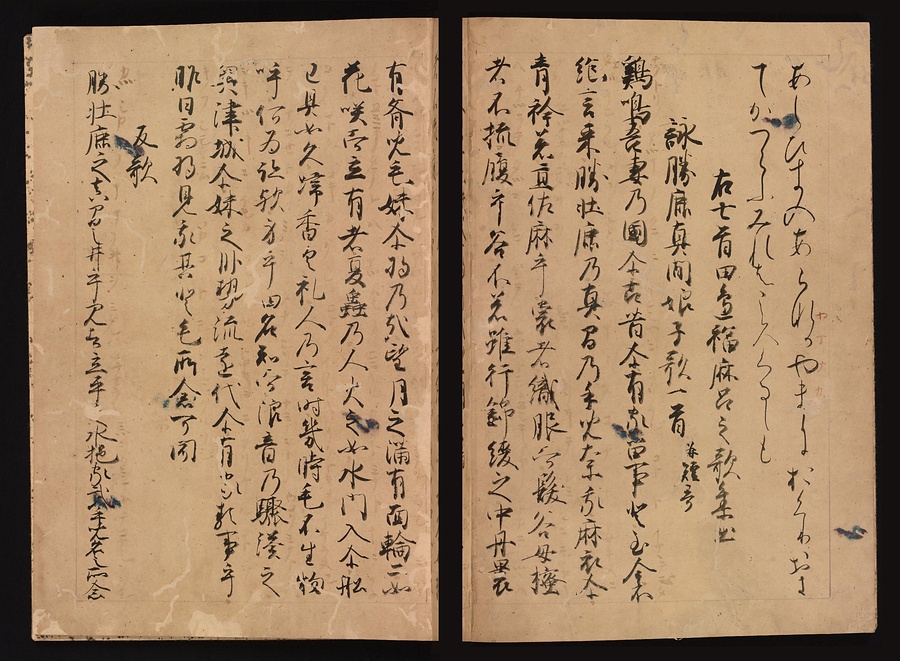 あしひきのあらやまにおくりおき
てかへらふみれはこころくるしも
右七首田邊福麻呂之歌集出
詠勝鹿真間娘子歌一首 并短哥
鶏鳴吾妻乃國尓古昔尓有家留事登至今不
絶言来勝壮鹿乃真間乃手兒奈我麻衣尓
青衿著直佐麻乎裳者織服而髪谷母掻
者不梳履乎谷不著雖行錦綾之中丹裹
有齊兒毛妹尓将及哉望月之満有面輪二如
花咲而立有者夏蟲乃入火之如水門入尓船
己具如久歸香具礼人乃言時幾時毛不生物
呼何為跡歟身乎田名知而浪音乃驟湊之
奥津城尓妹之臥勢流遠代尓有家類事乎
昨日霜将見我其登毛所念可聞
反歌
勝壮鹿之真間之井乎見者立平之水挹家武手兒名之所念